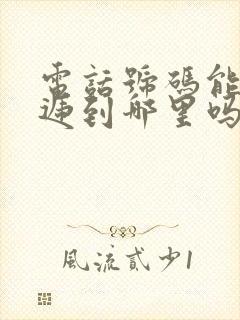 電話號碼能
到那里吗
風流貳少1